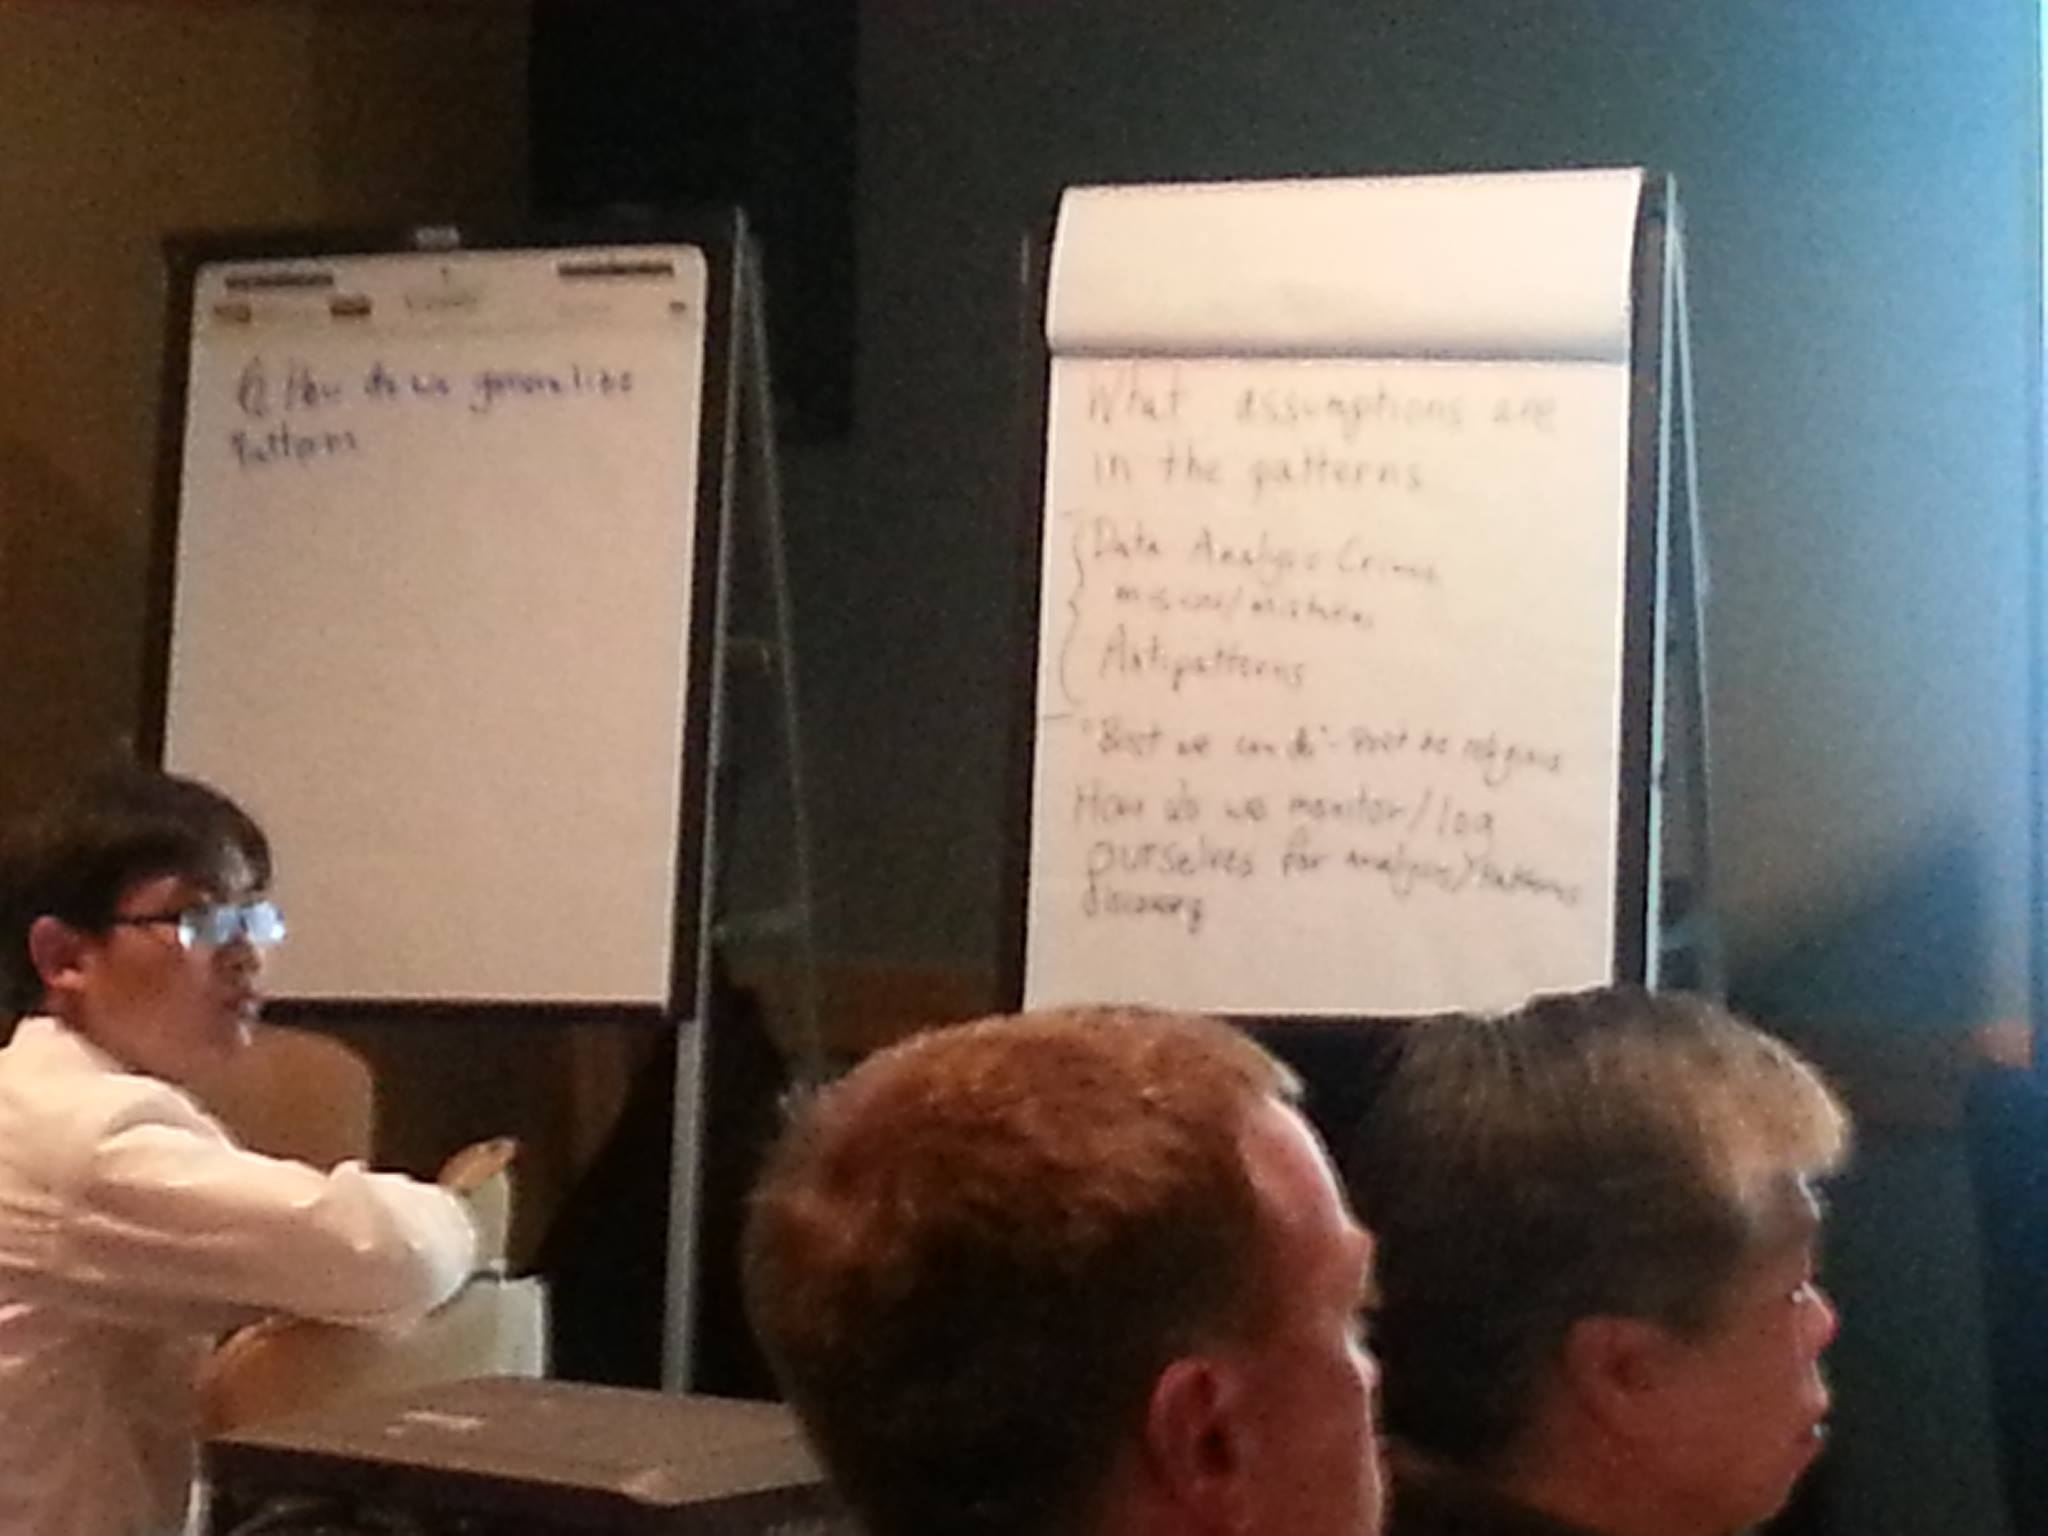 Q: How do we generalize
Patterns
What assumptions are
in the patterns
Data Analysis Crimes
misuse/mistakes
Antipatterns
"Best we can do" - not religious
How do we monitor/log
ourselves for analysis/patterns
discovery